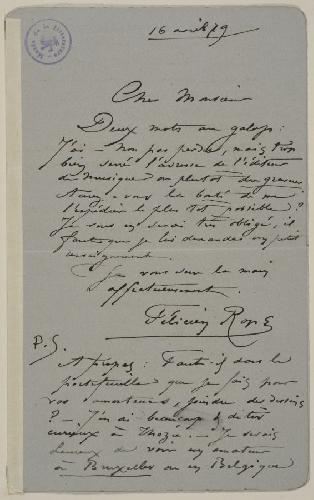 16 avril 79
Cher Monsieur
Deux mots au galop:
J'ai – non pas perdu, mais trop
bien serré l'adresse de l'éditeur
de musique ou plutôt du graveur
Auriez-vous la bonté de me
l'expédier le plus tôt possible?
Je vous en serai très obligé, il
faut que je lui demande un petit
renseignement.
Je vous serre la main
affectueusement.
Félicien Rops
P.S.
A propos: Faut-il dans le
portefeuille que je fais pour
vos amateurs, joindre des dessins
? – J'en ai beaucoup & de très
curieux à Thozée. – Je serais
heureux de voir un amateur
à Bruxelles ou en Belgique